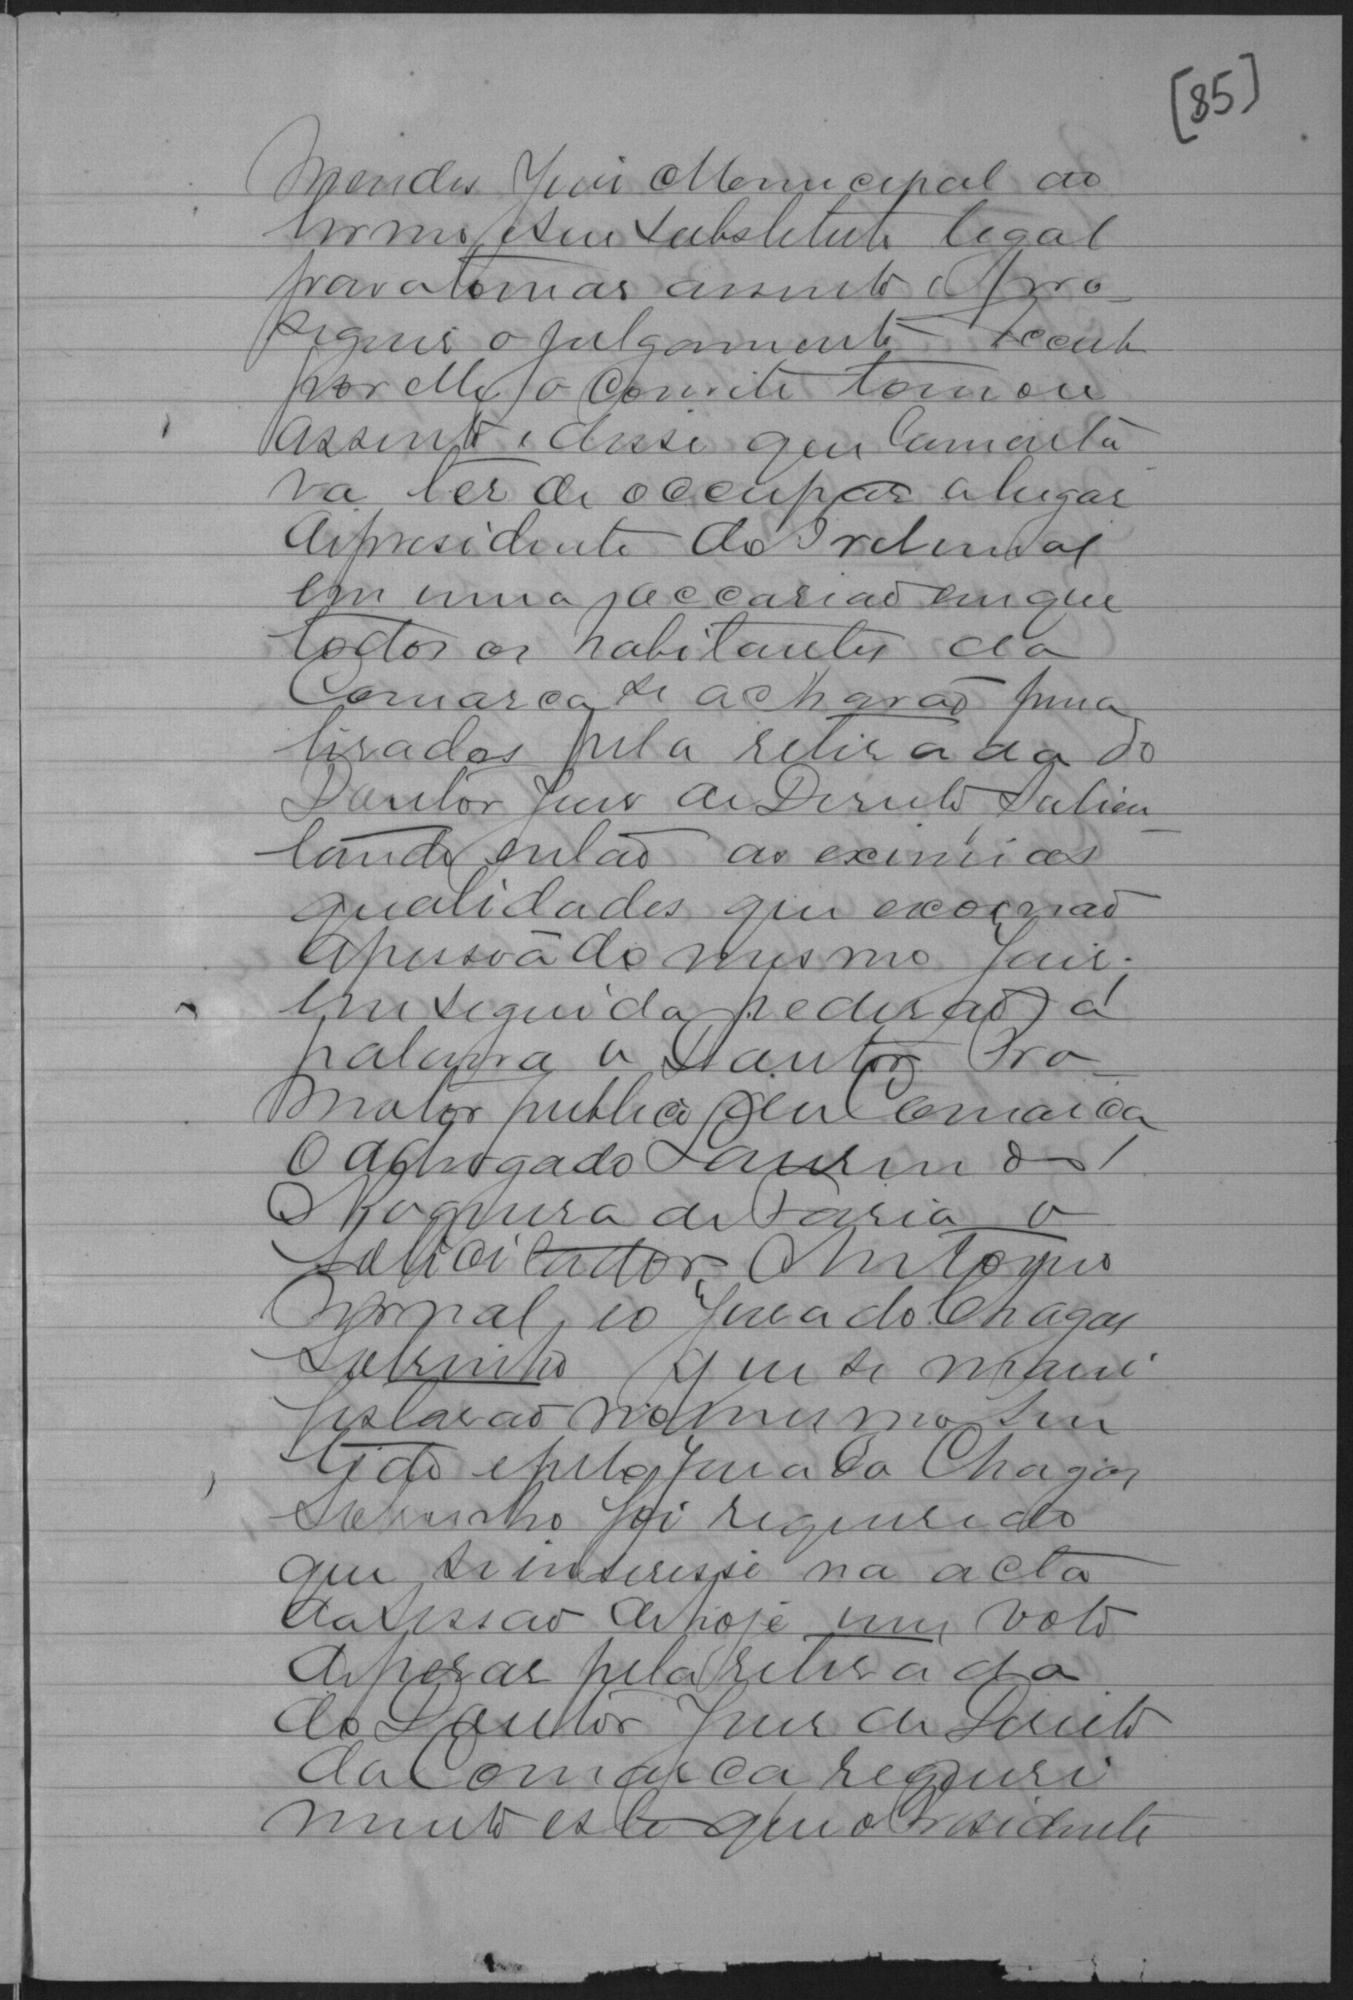 [85]
Mendes Juiz Municipal do
termo e seu substituto legal
para tomar assento e pro-
seguir o julgamento Acceito
por elle o convite tomou
assento e disse que lamenta
va ter de occupar o lugar
de presidente do Tribunal
em uma occasiaõ em que
todos os habitantes da
Comarca se acharaõ pena
lisados pela retirada do
Doutor Juiz de Direito Salien
tando entaõ as eximias
qualidades que exornaõ
a pessoa do mesmo Juiz.
Em seguida pediraõ a
palavra o Doutor Pro-
motor publico da Comarca
o advogado Laurindo
Nogueira de Faria o
solicitador Antonio
eo Jurado Chagas
Sobrinho que se mani
festaraõ no mesmo sen
tido e pelo Jurado Chagas
Sobrinho foi requerido
que se inserisse na acta
da sessaõ de hoje um voto
de pesar pela retirada
do Doutor Juiz de Direito
da Comarca requeri
mento este que o Presidente